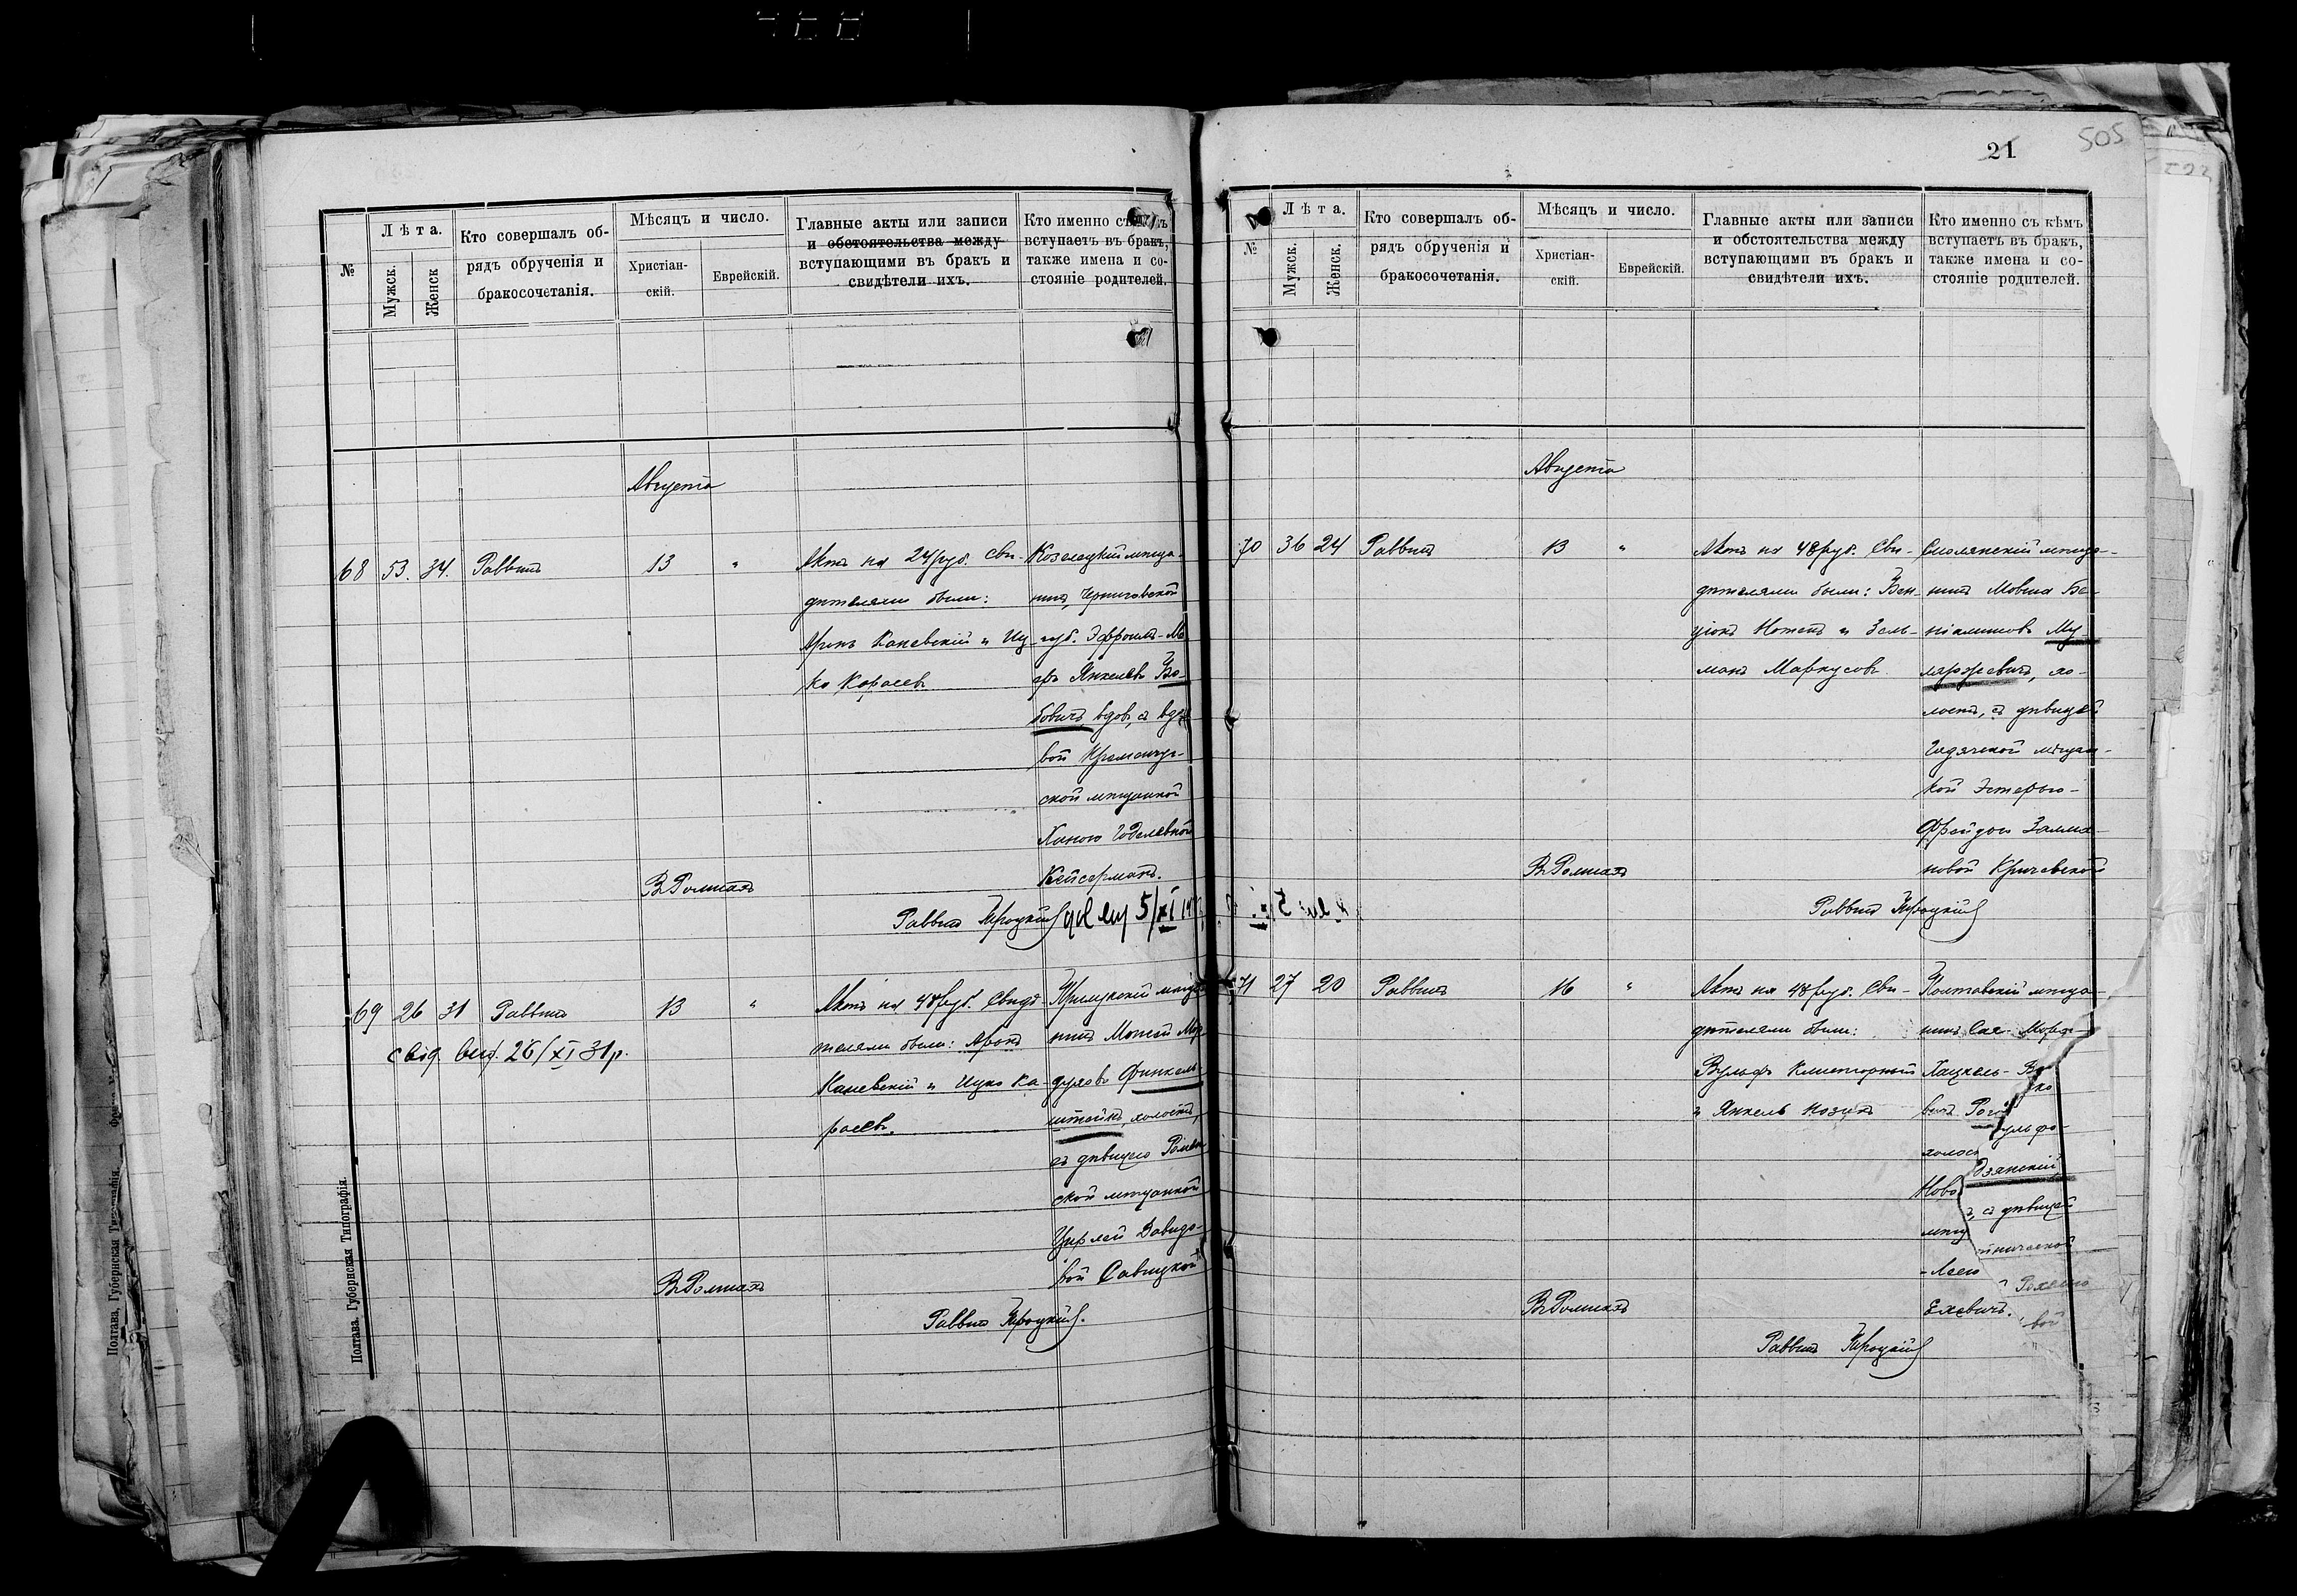 №
Лѣта.
Мужск.
Женск
Кто совершалъ об-
рядъ обрученія и
бракосочетанія.
Мѣсяцъ и число.
Христіан-
скій.
Еврейскій.
Главные акты или записи
и обстоятельства между
вступающими въ бракъ и
свидѣтели ихъ.
Кто именно съ
вступаетъ въ бракъ,
также имена и со-
стояніе родителей.
Августа
68 53. 34. Раввинъ 13 "
Актъ на 24 руб. Сви-
дѣтелями были:
Аронъ Каневскій и Иц-
ко Карасев
Козелецкій мѣща-
нинъ, Черниговской
губ. Эфроимъ-Ме
еръ Янкелевъ Бо-
бовичъ, вдов, съ вдо
вой Кременчуг-
ской мѣщанкой
Ханою Годелевной
Кейсерманъ.
Въ Ромнахъ
Раввинъ
5/XI
69 26 31 Раввинъ 13 "
свід. вид. 26/XI 31 р.
Актъ на 48 руб. Свидѣ
телями были: Аронъ
Каневскій и Ицко Ка-
расевъ.
Прилукскій мѣща
нинъ Мотей Мор
духовъ Финкель-
штейнъ, холостъ,
съ дѣвицею Ромен
ской мѣщанкой
Цирлей Давидо-
вой Савицкой
Въ Ромнахъ
Раввинъ
Полтава, Губернская Типографія.
Полтава, Губернская
21
505
№
Лѣта.
Мужск.
Женск.
Кто совершалъ об-
рядъ обрученія и
бракосочетанія.
Мѣсяцъ и число.
Христіан-
скій.
Еврейскій.
Главные акты или записи
и обстоятельства между
вступающими въ бракъ и
свидѣтели ихъ.
Кто именно съ кѣмъ
вступаетъ въ бракъ,
также имена и со-
стояніе родителей.
Августа
70 36 24 Раввинъ 13 "
Актъ на 48 руб. Сви-
дѣтелями были: Бен-
ціонъ Нотесъ и Зель-
манъ Маркусовъ
Смолянскій мѣща-
нинъ Мовша Бе-
ніаминовъ Му-
ляржевичъ, хо-
лостъ, съ дѣвицей
Гадячской мѣщан-
кой Эстерью-
Фрейдою Залма-
новой Кричевской
Въ Ромнахъ
Раввинъ
71 27 20 Раввинъ 16 "
Актъ на 48 руб. Сви-
дѣтелями были:
Вульфъ Клигорный
и Янкель Козинъ
Полтавскій мѣща-
нинъ Сая-Мордо-
Хацкель-
ульфо-
холос
дзянскій
Ново
, съ дѣвицей
мѣщ
-Леею
Рохлею
Елевичъ.
вой
Въ Ромнахъ
Раввинъ